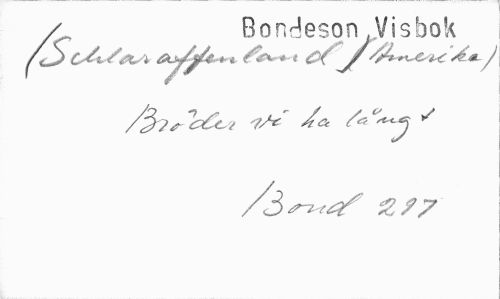 Bondeson Visbok
(Schlaraffenland)(Amerika)
Bröder vi ha långt
Bond 297